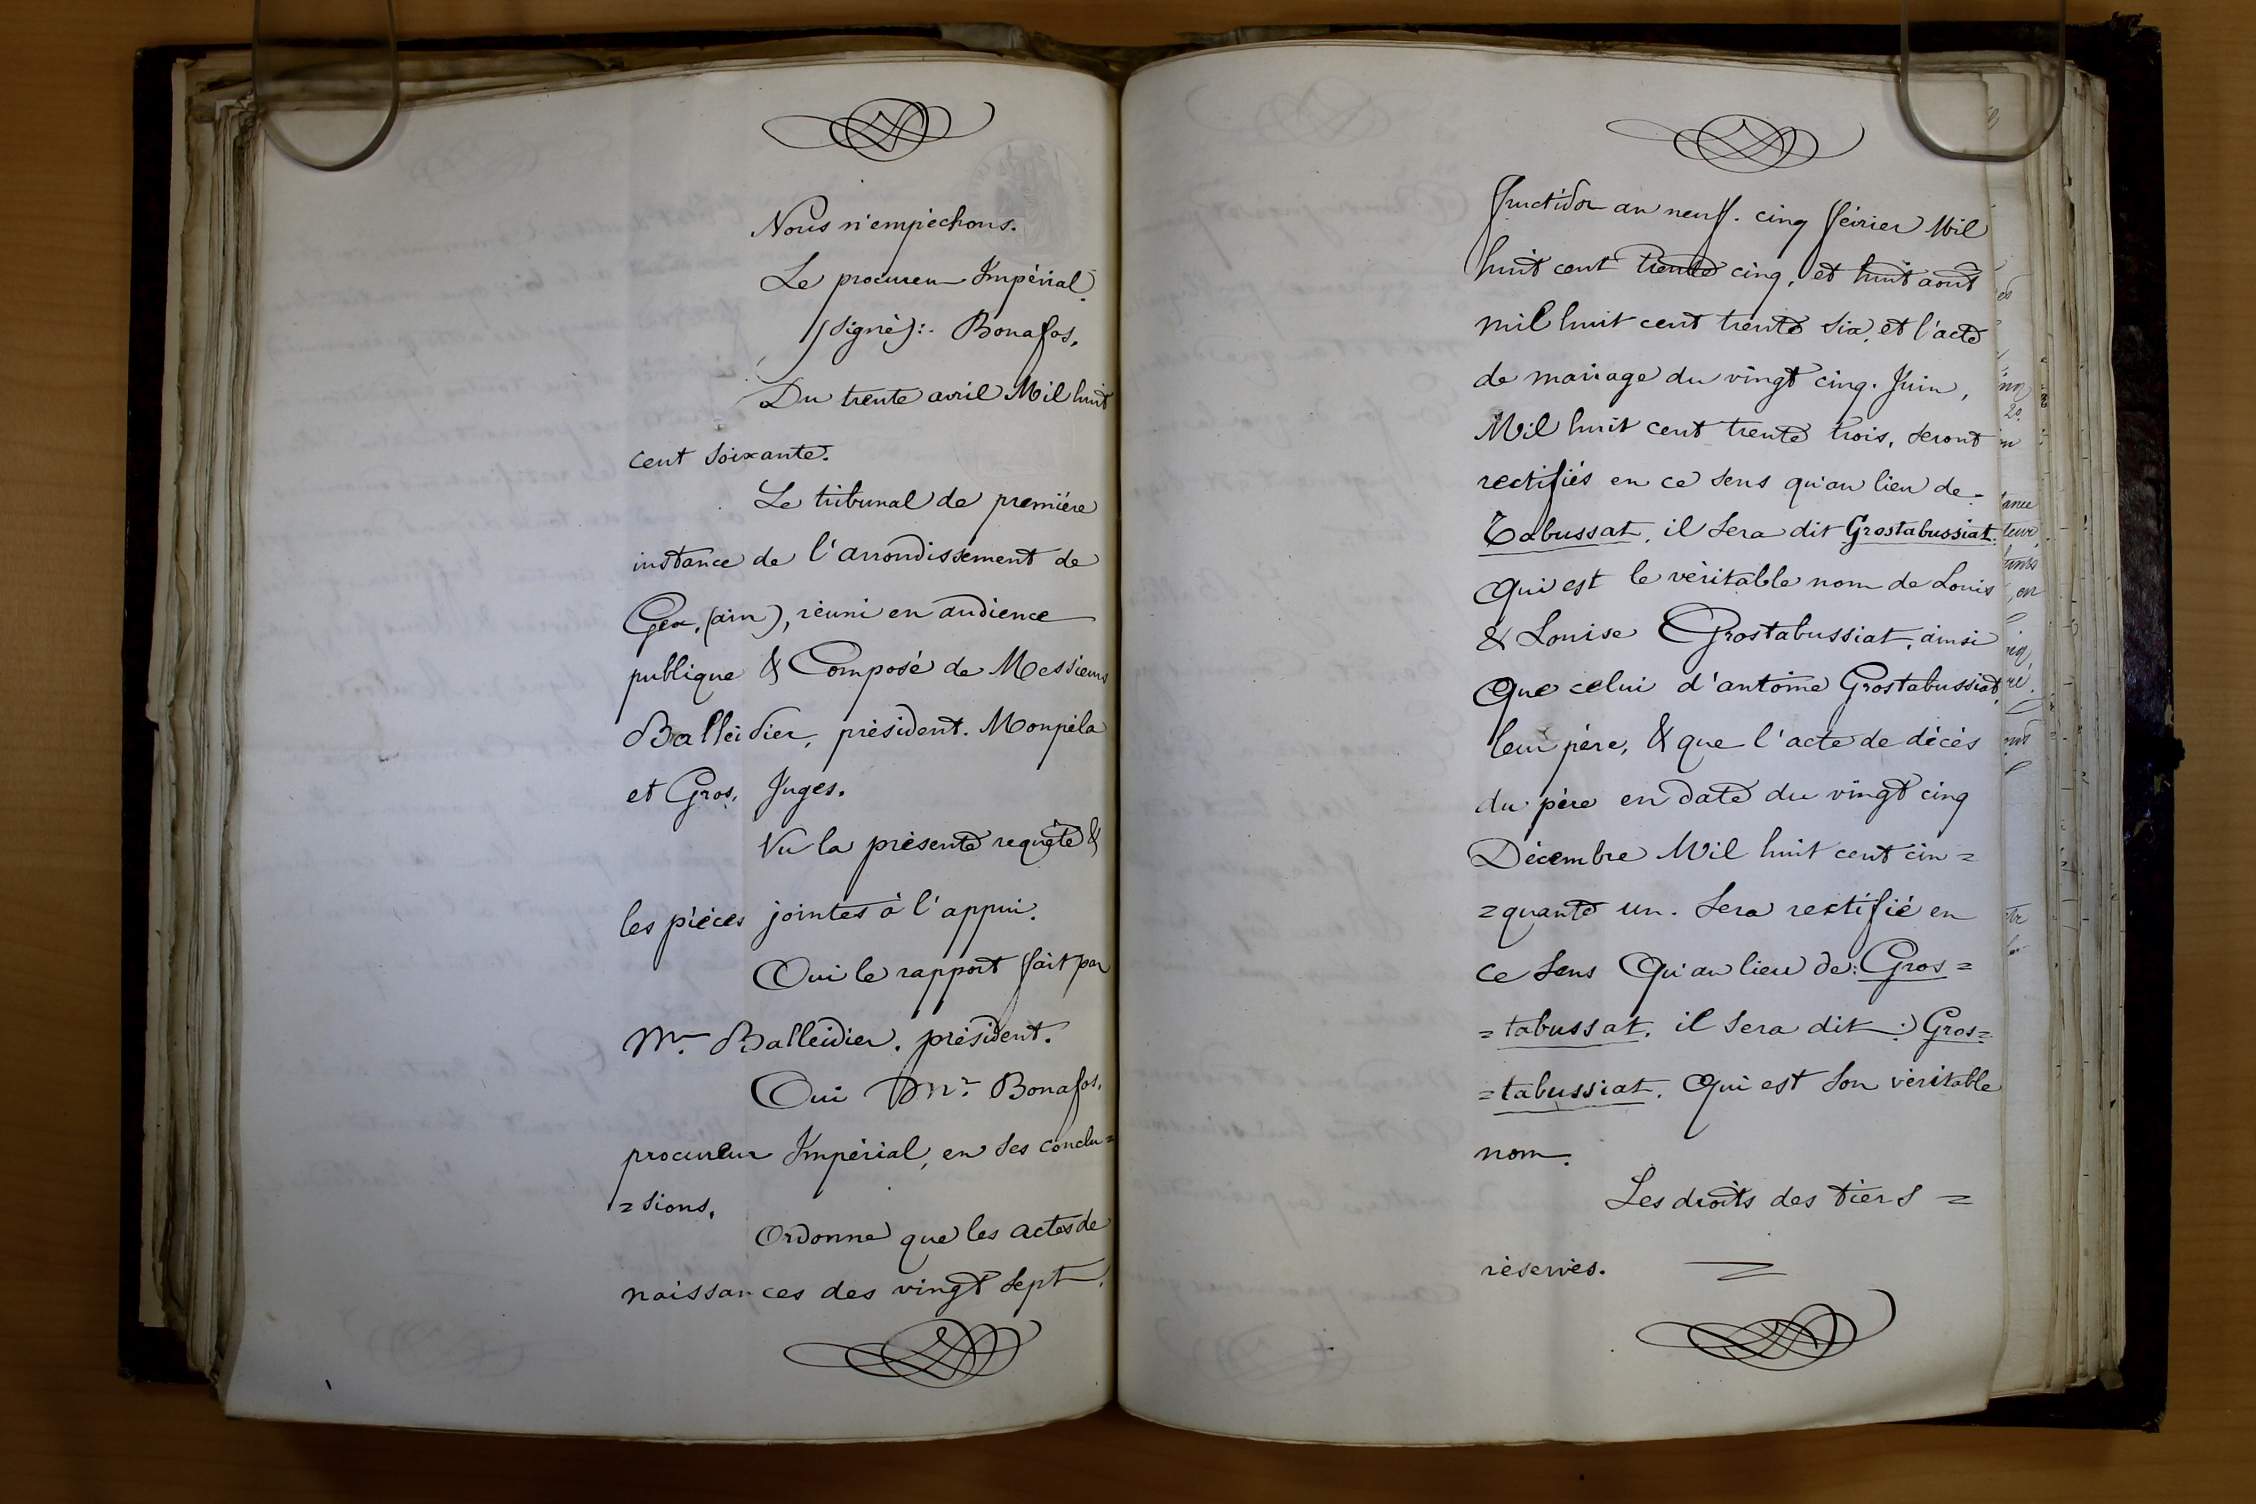 Nous n'empêchons.
Le procureur Impérial.
(signé):. Bonafos.
Du trente avril Mil huit
cent soixante.
Le tribunal de première
instance de l'arrondissement de
Gex, (ain), réuni en audience
publique & Composé de Messieurs
Balleidier, président. Monpéla
et Gros, Juges.
Vu la présente requête &
les pièces jointes à l'appui.
Oui le rapport fait par
Mr. Balleidier. président.
Oui Mr. Bonafos.
procureur Impérial, en ses conclu=
=sions.
Ordonne que les actes de
naissances des vingt sept
fructidor an neuf. cinq février Mil
huit cent trente cinq, et huit août
mil huit cent trente six, et l'acte
de mariage du vingt cinq Juin,
Mil huit cent trente trois, seront
rectifiés en ce sens qu'au lieu de-
Tabussat, il sera dit Grostabussiat.
Qui est le véritable nom de Louis
& Louise Grostabussiat, ainsi
Que celui d'antoine Grostabussiat,
leur père, & que l'acte de décès
du père en date du vingt cinq
Décembre Mil huit cent cin=
=quante un. Sera rectifié en
ce sens Qu'au lieu de: Gros=
=tabussat, il sera dit :) Gros=
=tabussiat. Qui est son véritable
nom.
Les droits des tiers =
réservés.